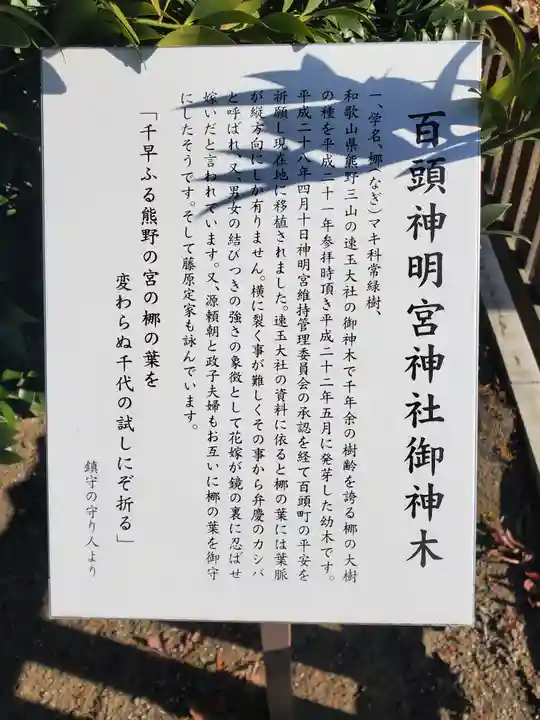 百頭神明宮神社御神木
一、学名、梛(なぎ)マキ科常緑樹、
和歌山県熊野三山の速玉大社の御神木で千年余の樹齢を誇る梛の大樹
の種を平成二十一年参拝時頂き平成二十二年五月に発芽した幼木です。
平成二十八年四月十日神明宮維持管理委員会の承認を経て百頭町の平安を
祈願し現在地に移植されました。速玉大社の資料に依ると梛の葉には葉脈
が縦方向にしか有りません。横に裂く事が難しくその事から弁慶のカシバ
と呼ばれ、又、男女の結びつきの強さの象徴として花嫁が鏡の裏に忍ばせ
嫁いだと言われています。又、源頼朝と政子夫婦もお互いに梛の葉を御守
にしたそうです。そして藤原定家も詠んでいます。
「千早ふる熊野の宮の梛の葉を
変わらぬ千代の試しにぞ折る」
鎮守の守り人より